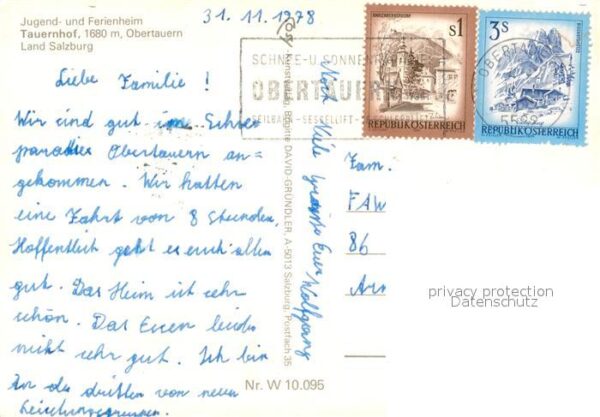 Jugend- und Ferienheim
Tauernhof, 1680 m, Obertauern
Land Salzburg
31.11.1978
Liebe Familie!
Wir sind gut im Schnee-
paradies Obertauern an-
gekommen. Wir hatten
eine Fahrt von 8 Stunden.
Hoffentlich geht es euch allen
gut. Das Heim ist sehr
schön. Das Essen leider
nicht sehr gut. Ich bin
in der dritten von neun
Leistungsgruppen.
Noch viele grüsse Euer Wolfgang
Kunstverlag, Brigitte DAVID-GRÜNDLER, A-5013 Salzburg, Postfach 35
Nr. W 10.095
SCHNEE-U. SONNEN
OBERTAUERN
SEILBAHN - SESSELLIFT -
s1
REPUBLIK ÖSTERREICH
3s
REPUBLIK ÖSTERREICH
OBERTAUERN
5562
Fam.
FAW
86
privacy protection
Datenschutz